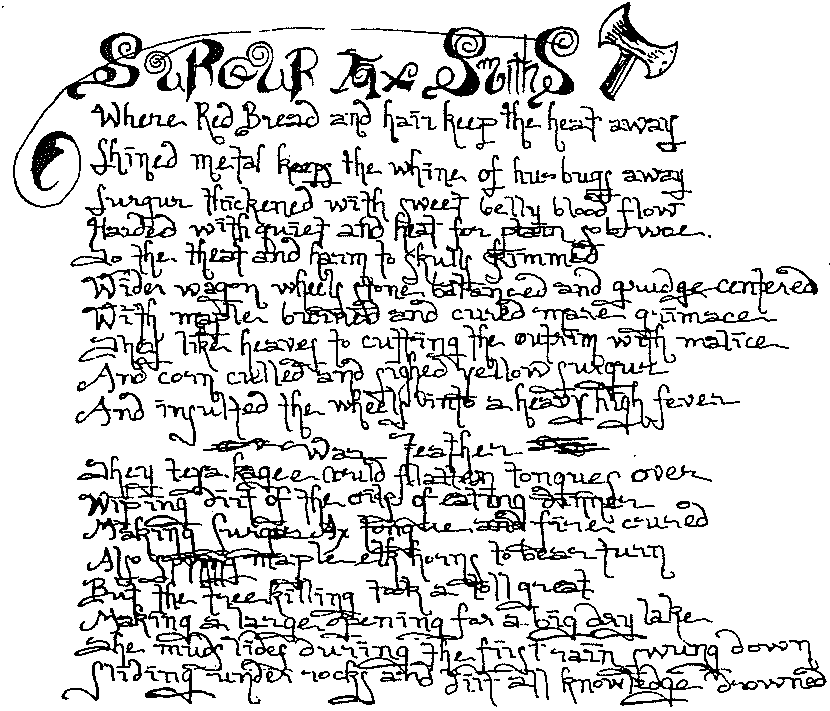 Surgur Ax Smiths
Where Red Bread and hair keep the heat away
Shined metal keeps the whine of hus bugs away
Surgur thickened with sweet belly blood flow
Harded with quiet and heat for
So the theat and harm to skulls skimmed
Wider wagon wheels stone balanced and grudge centered
With maple brined and cured mare grimace
They like heaves to cutting the outrim with malice
And corn culled and sighed yellow surgur
And insulted the wheels into a heavy high fever
War Feather
They kagee could flatten tongues over
Wiping dirt of the oils of eating dinner
Making Surgur Ax tongue and fire cured
Also maple elk horns to bear turn
But the tree killing took a toll great
Making a large opening for a big dry lake
The mudslides during the first rain swung down
Sliding under rocks and dirt all knowledge drowned